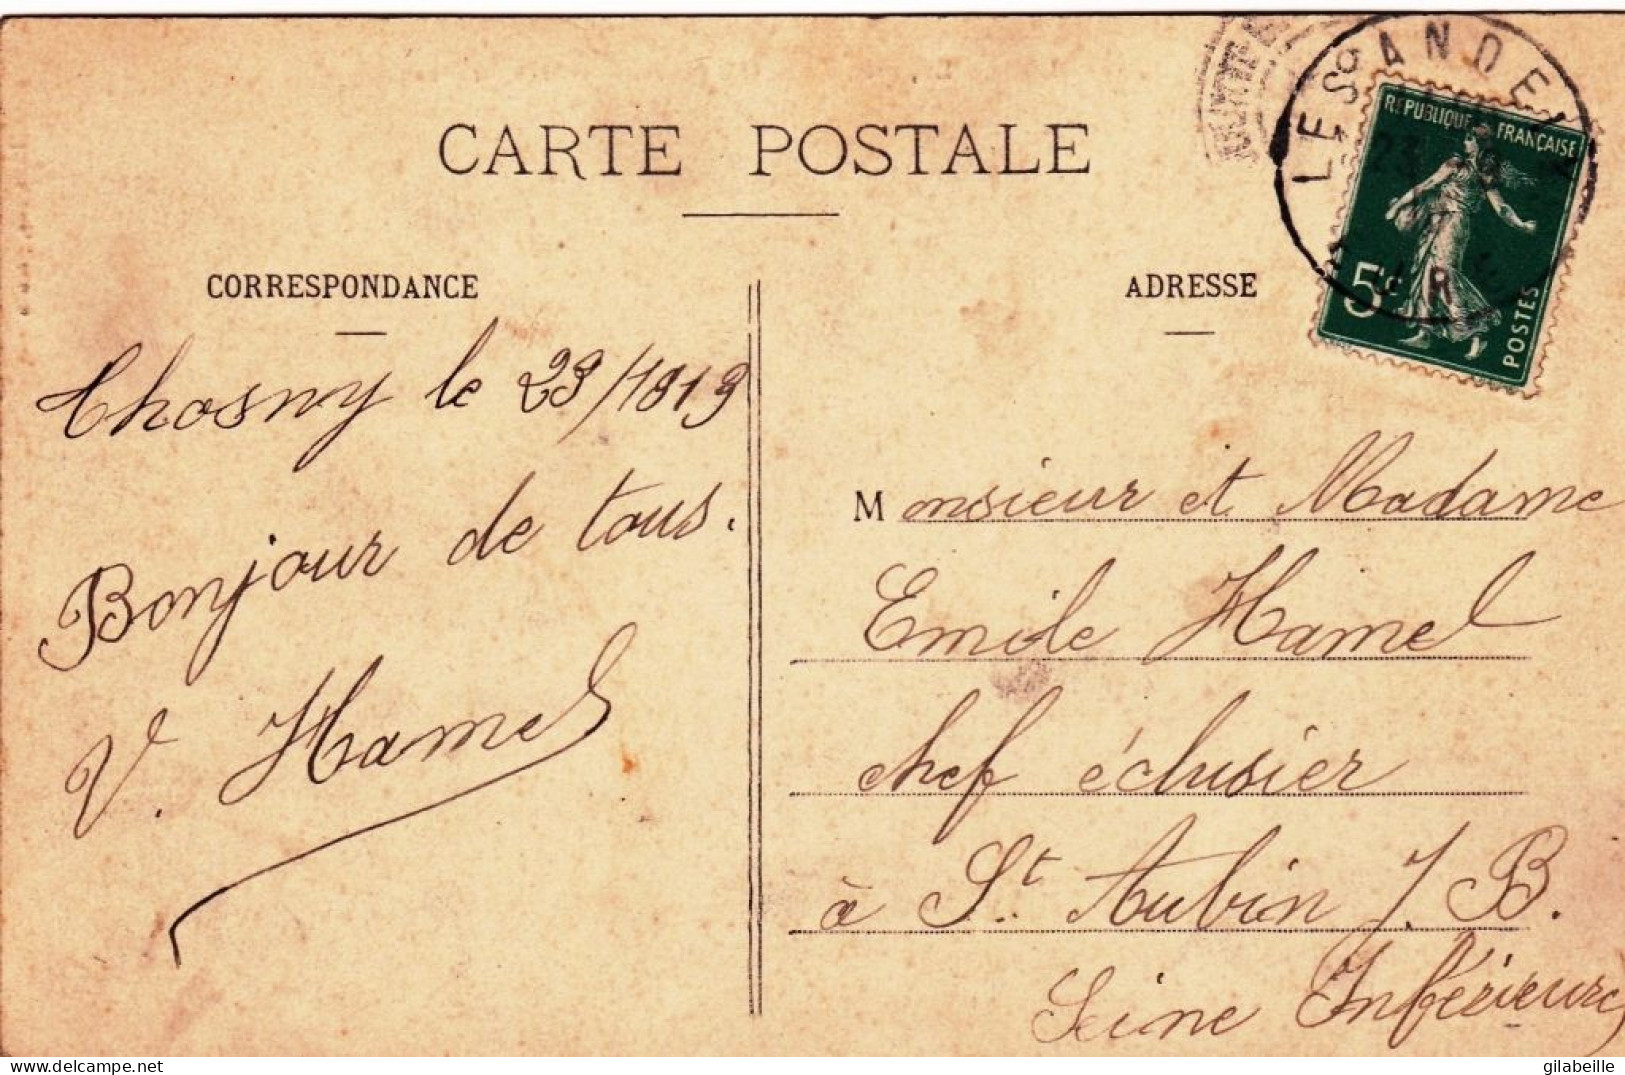 CARTE POSTALE
CORRESPONDANCE
ADRESSE
LES ANDE
REPUBLIQUE FRANÇAISE
23
5c
POSTES
Thosny le 23/1919
Bonjour de tous.
V. Hamel
Monsieur et Madame
Emile Hamel
chef éclusier
à St Aubin J. B.
Seine Inférieure
gilabeille